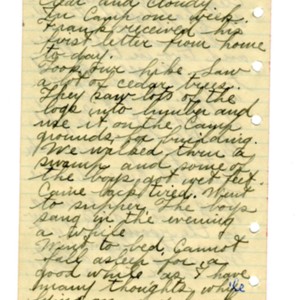 Clear and cloudy.
In Camp one week.
Frank received his
first letter from home
to-day.
Took our hike. Saw
a lot of cedar trees.
They saw lots of the
logs into lumber and
use it on the Camp
grounds for building.
We walked thru a
swamp and some of
the boys got wet feet.
Came back tired. Went
to supper. The boys
sang in the evening
a while
Went to bed, Cannot
fall asleep for a
good while as I have
many thoughts while